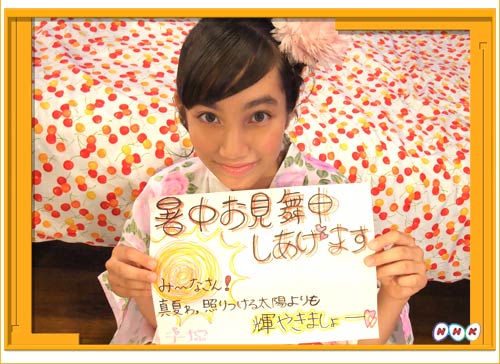 暑中お見舞申
しあげます
み〜なさん!
真夏わ。照りつける太陽よりも
輝やきましょー
NHK